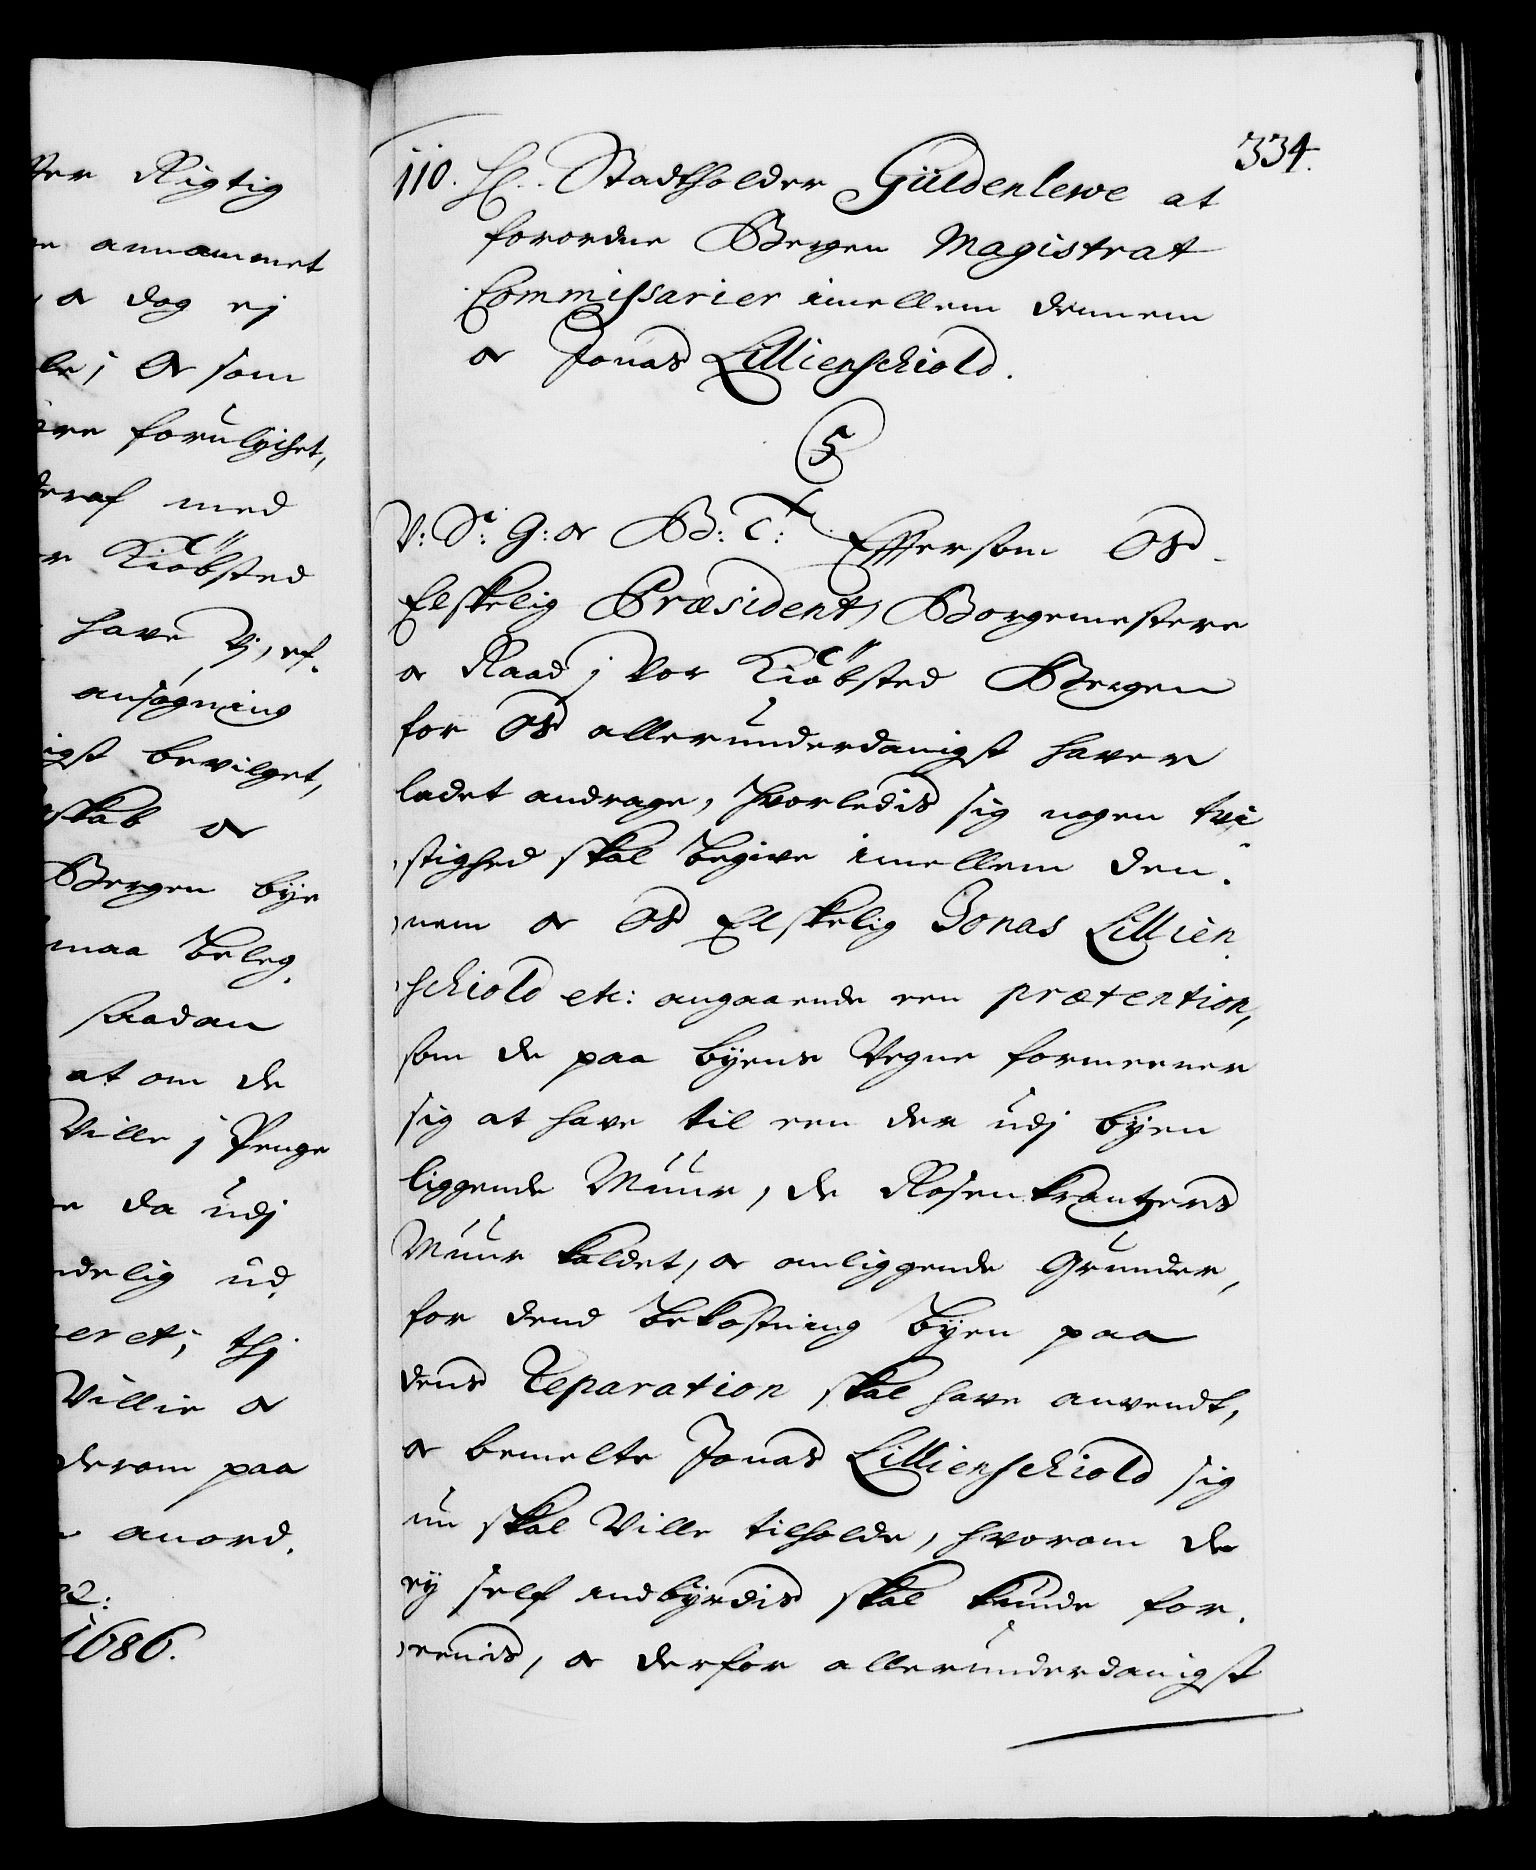 ter Rigtig
annammet
, oc dog ej
le; Oc som
være forulyckt,
deraf med
Kiøbsted
have Vj, ef-
ansøgning
igst bevilget,
skab oc
Bergen bye
maa beleg-
saadan
at om de
Ville j Penge
da udj
delig ud-
eret; thj
Villie oc
derom paa
anord-
1686.
334.
110. H. Stadtholder Güldenlewe at
forordne Bergen Magistrat
Commissarier imellem dennem
oc Jonas Lillienschiold.
5
V: S: G: oc B: T: Eftersom Os
Elskelig Præsident, Borgemestere
oc Raad j vor Kiøbsted Bergen
for Os allerunderdanigst haver
ladet andrage, hvorledis sig nogen tvi
stighed skal begive imellem den-
nem oc Os Elskelig Jonas Lillien
schiold etc: angaaende een prætention,
som de paa byens Vegne formeener
sig at have til een der udj byen
liggende Muur, de Rosenkrantzers
Muur kaldet, oc omliggende Grunder,
for dend bekostning byen paa
dens Reparation skal have anvendt,
oc bemelte Jonas Lillienschiold sig
nu skal Ville tilholde, hvorom de
ej self indbyrdis skal kunde for-
eenis, oc derfor allerunderdanigst